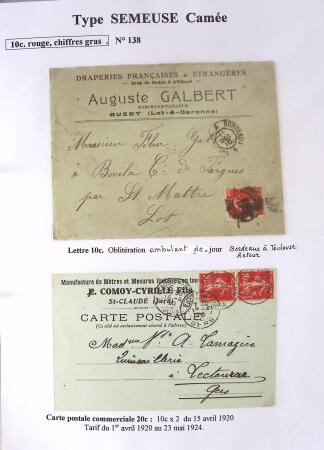 Type SEMEUSE Camée
10c. rouge, chiffres gras . N° 138
DRAPERIES FRANÇAISES & ÉTRANGÈRES
Drap de Sedan & d'Elbeuf
Auguste GALBERT
MARCHAND-TAILLEUR
BUZET (Lot-&-Garonne)
Monsieur
à
par St Mattre
Lot
Lettre 10c. Oblitération ambulant de jour Bordeaux à Toulouse
Retour
Manufacture de Mètres et Mesures linéaires en tous
COMOY-CYRILLE Fils
St-CLAUDE (Jura)
CARTE POSTALE
(Ce côté est exclusivement réservé à l'adresse)
A. Lamagère
Quincaillerie
à Lectoure
Gers
Carte postale commerciale 20c : 10c x 2 du 15 avril 1920
Tarif du 1er avril 1920 au 23 mai 1924.